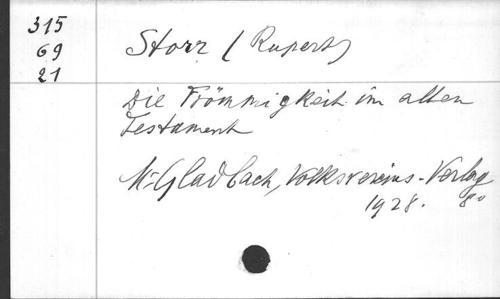 315
69
21
Storr (Rupert)
Die Frömmigkeit im alten
Testament
M-Gladbach, Volksvereins-Verlag
1928. 8°